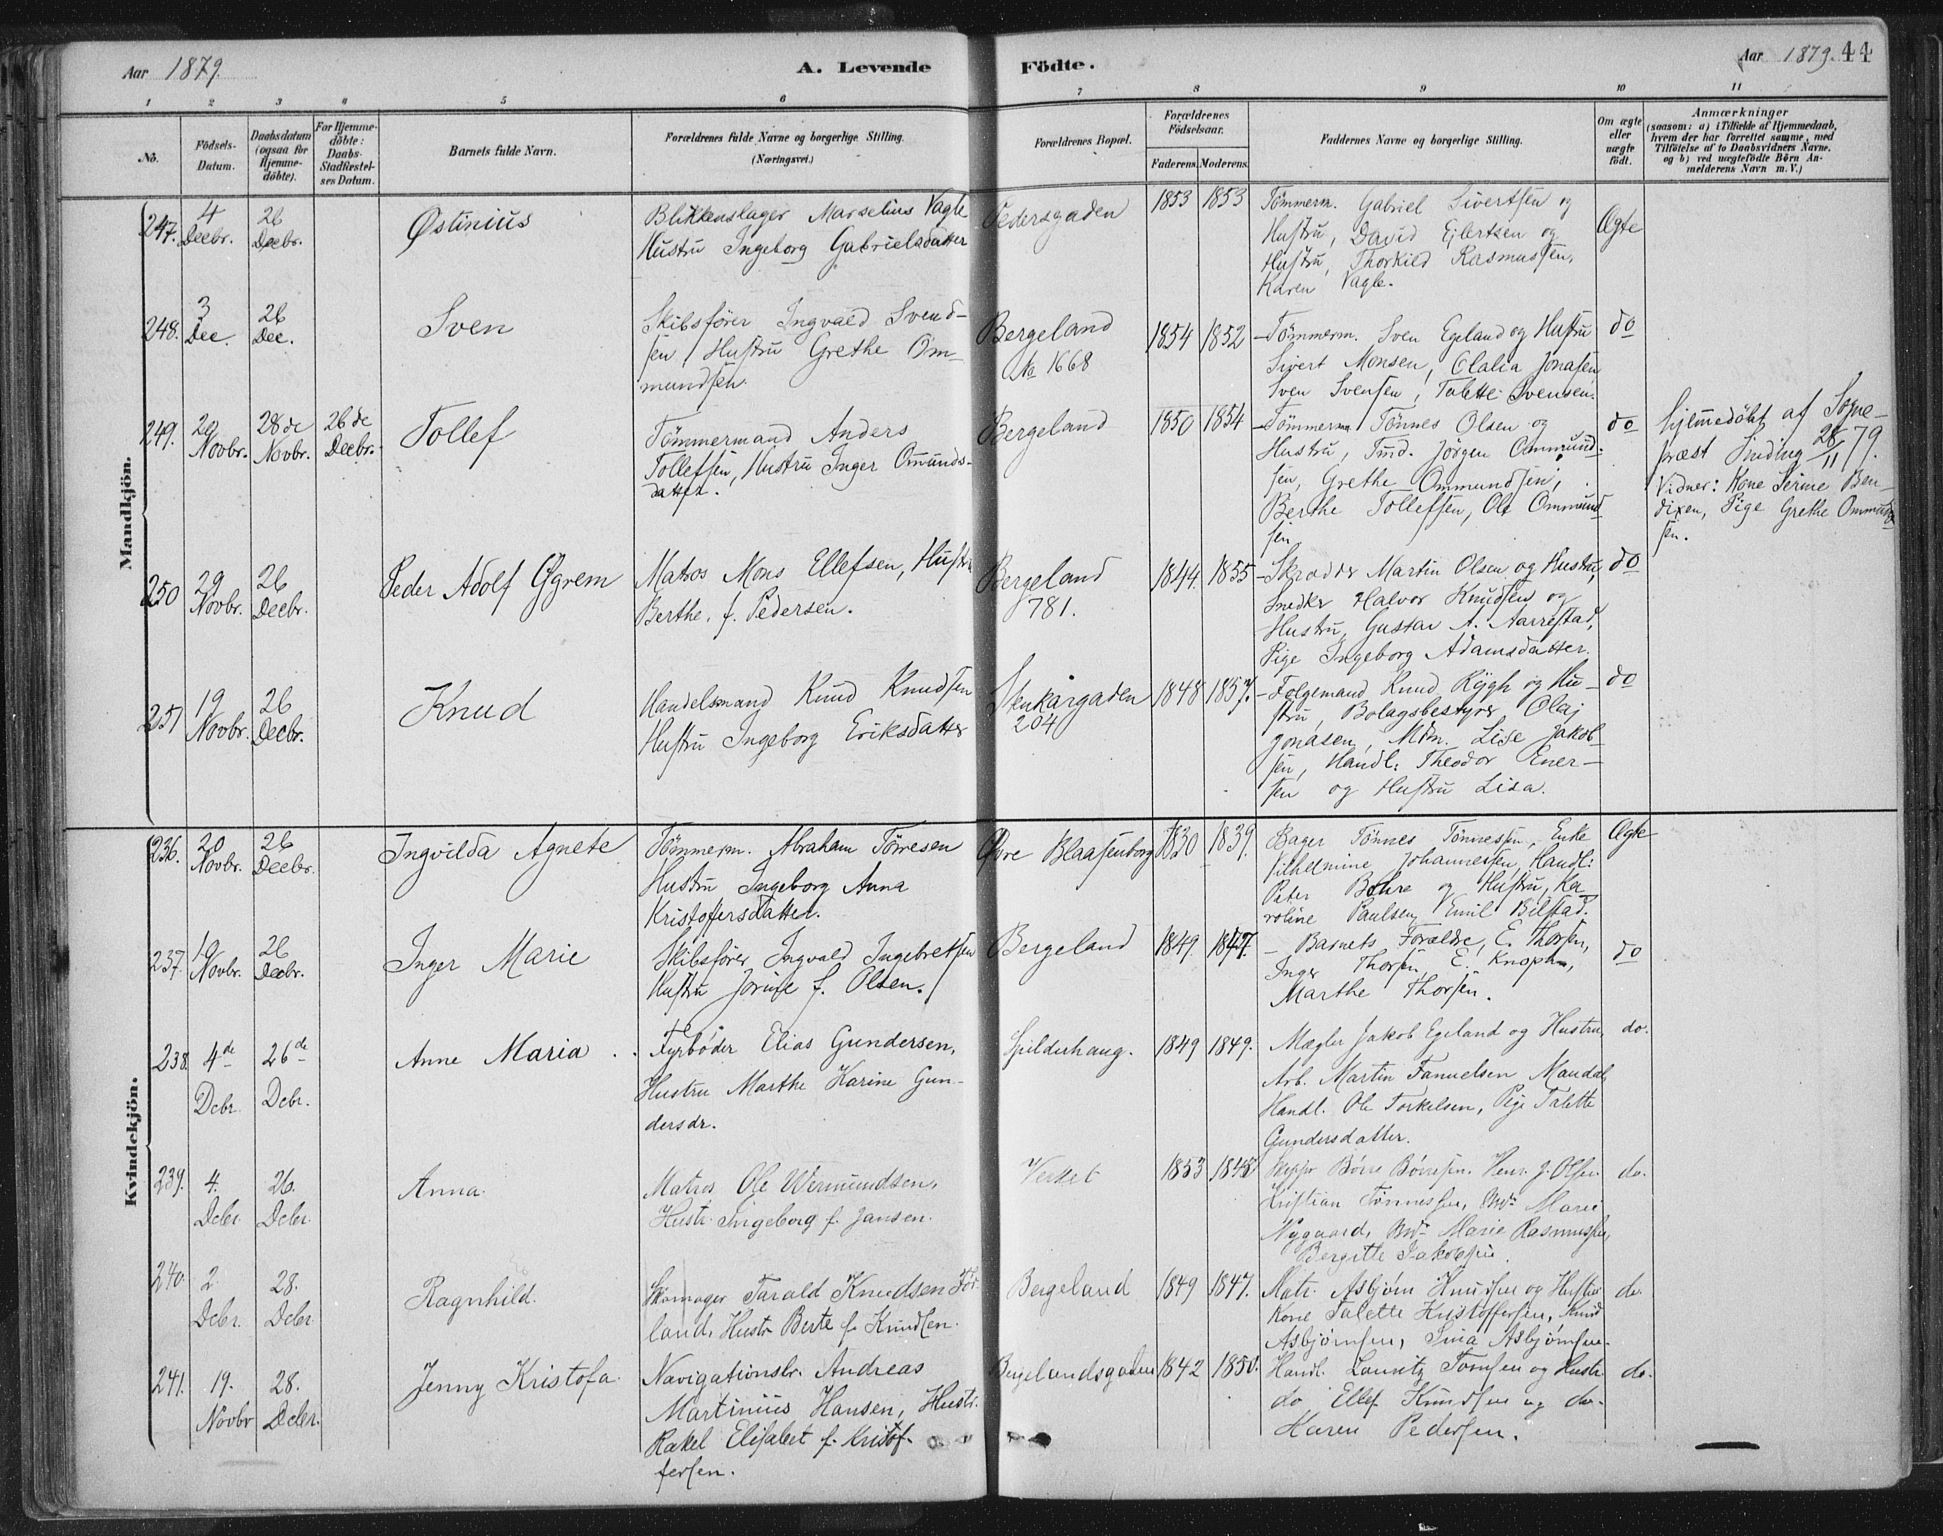 Aar 1879.
A. Levende Födte.
Aar 1879. 44
1 2 3 4 5 6 7 8 9 10 11
No.
Födsels-Datum.
Daabsdatum (ogsaa for Hjemme-döbte).
For Hjemme-döbte: Daabs-Stadfæstel-ses Datum.
Barnets fulde Navn.
Forældrenes fulde Navne og borgerlige Stilling. (Næringsvei.)
Forældrenes Bopæl.
Forældrenes Födselsaar.
Faderens. Moderens.
Faddernes Navne og borgerlige Stilling.
Om ægte eller uægte födt.
Anmærkninger
(saasom: a) i Tilfælde af Hjemmedaab, hvem der har forrettet samme, med Tilföielse af to Daabsvidners Navne, og b) ved uægtefödte Börn An-melderens Navn m. V.)
Mandkjön.
247. 4 Decbr. 26 Decbr. Østinius
Blikkenslager Marselius Vagle
Hustru Ingeborg Gabrielsdatter
Pedersgaden 1853 1853
Tömmerm. Gabriel Sivertsen og
Hustru, David Ejlertsen og
Hustru, Thorkild Rasmussen,
Karen Vagle.
Ægte
248. 3 Dec. 26 Dec. Sven
Skibsfører Ingvald Svend-
sen, Hustru Grethe Om-
mundsen
Bergeland
No 1668
1854 1852
Tömmerm. Sven Egeland og Hustru
Sivert Monsen, Olalia Jonasen
Sven Svensen, Talette Svensen.
do
249. 20 Novbr. 28de Novbr. 26de Decbr. Tollef
Tömmermand Anders
Tollefsen, Hustru Inger Omunds-
datter.
Bergeland 1850 1854
Tömmerm Tönnes Olsen og
Hustru, Tmd. Jörgen Ommund-
sen, Grethe Ommundsen,
Berthe Tollefsen, Ole Ommund
sen
do
hjemmedøbt af Sogne-
præst Sinding 28/11 79.
Vidner: Kone Serine Ben-
dixen, Pige Grethe Ommund
sen.
250 29 Novbr. 26 Decbr. Peder Adolf Ygrem
Matros Mons Ellefsen, Hustr
Berthe, f. Pedersen.
Bergeland
781.
1844. 1855
Skrædder Martin Olsen og Hustru,
Snedkr Halvor Knudsen og
Hustru, Gustav A. Aarrestad,
Pige Ingeborg Adamsdatter.
do
251 19 Novbr. 26 Decbr. Knud
Handelsmand Knud Knudsen
Hustru Ingeborg Eriksdatter
Stenkargaden
204
1848 1857.
Følgemand Knud Rygh og Hu-
stru, Bolagsbestyrer Olaj
Jonasen, Mdm. Lise Jakob-
sen, Handl: Theodor Ener-
sen og Hustru Lisa.
do
Kvindekjön.
236. 20 Novbr. 26 Decbr. Ingvilda Agnete
Tömmerm. Abraham Törresen
Hustru Ingeborg Anna
Kristoffersdatter.
Øvre Blaasenborg 1830 1839.
Bager Tönnes Tönnessen, Enke
Vilhelmine Johannessen, Handl:
Peter Bohre og Hustru, Ka
roline Paulsen, Emil Bilstad.
Ægte
237. 19 Novbr. 26 Decbr. Inger Marie
Skibsfører Ingvald Ingebretsen
Hustru Jorine f. Olsen.
Bergeland 1849. 1847.
Barnets Forældre, E. Thorsen,
Inger Thorsen, E. Knoph,
Marthe Thorsen.
do
238. 4de Debr. 26de Debr. Anne Maria
Fyrbøder Elias Gundersen,
Hustru Marthe Karine Gun-
dersdr.
Spilderhaug. 1849 1849.
Mægler Jakob Egeland og Hustru,
Arb. Martin Fanuelsen Maudal,
Handl. Ole Torkelsen, Pige Talette
Gundersdatter.
do.
239. 4. Dcbr. 26. Dcbr. Anna.
Matros Ole Wermundsen,
Hustr. Ingeborg f. Jansen.
Verket 1853 1848
Børre Børresen. J. Olsen
Kristian Tønnessen, Mdm Marie
Nygaard, Mdm Marie Rasmussen,
Bergitte Jakobsen.
do.
240. 2. Dcbr. 28. Dcbr. Ragnhild.
Skomager Tarald Knudsen För-
land, Hustr Berte f. Knudsen.
Bergeland 1849 1847.
Matr. Asbjørn Knudsen og Hustru
Kone Talette Kristoffersen, Knud
Asbjørnsen, Sina Asbjørnsen.
do.
241. 19. Novbr 28. Dcbr. Jenny Kristofa.
Navigationslr. Andreas
Martinius Hansen, Hustr.
Rakel Elisabet f. Kristof-
fersen.
Bergelandsgaden 1842 1850.
Handl. Lauritz Tomsen og Hustr
do Ellef Knudsen og do.
Karen Pedersen.
do.